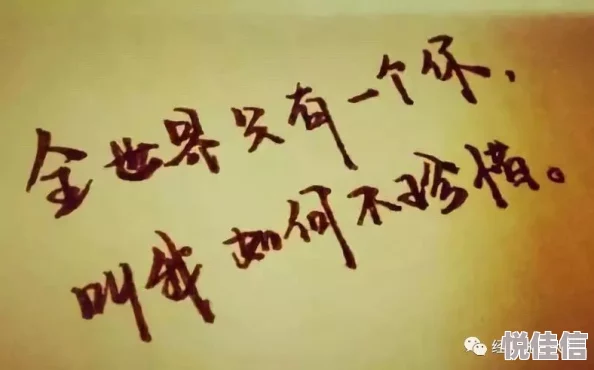 全世界只有一个你，
叫我如何不珍惜。
悦佳信